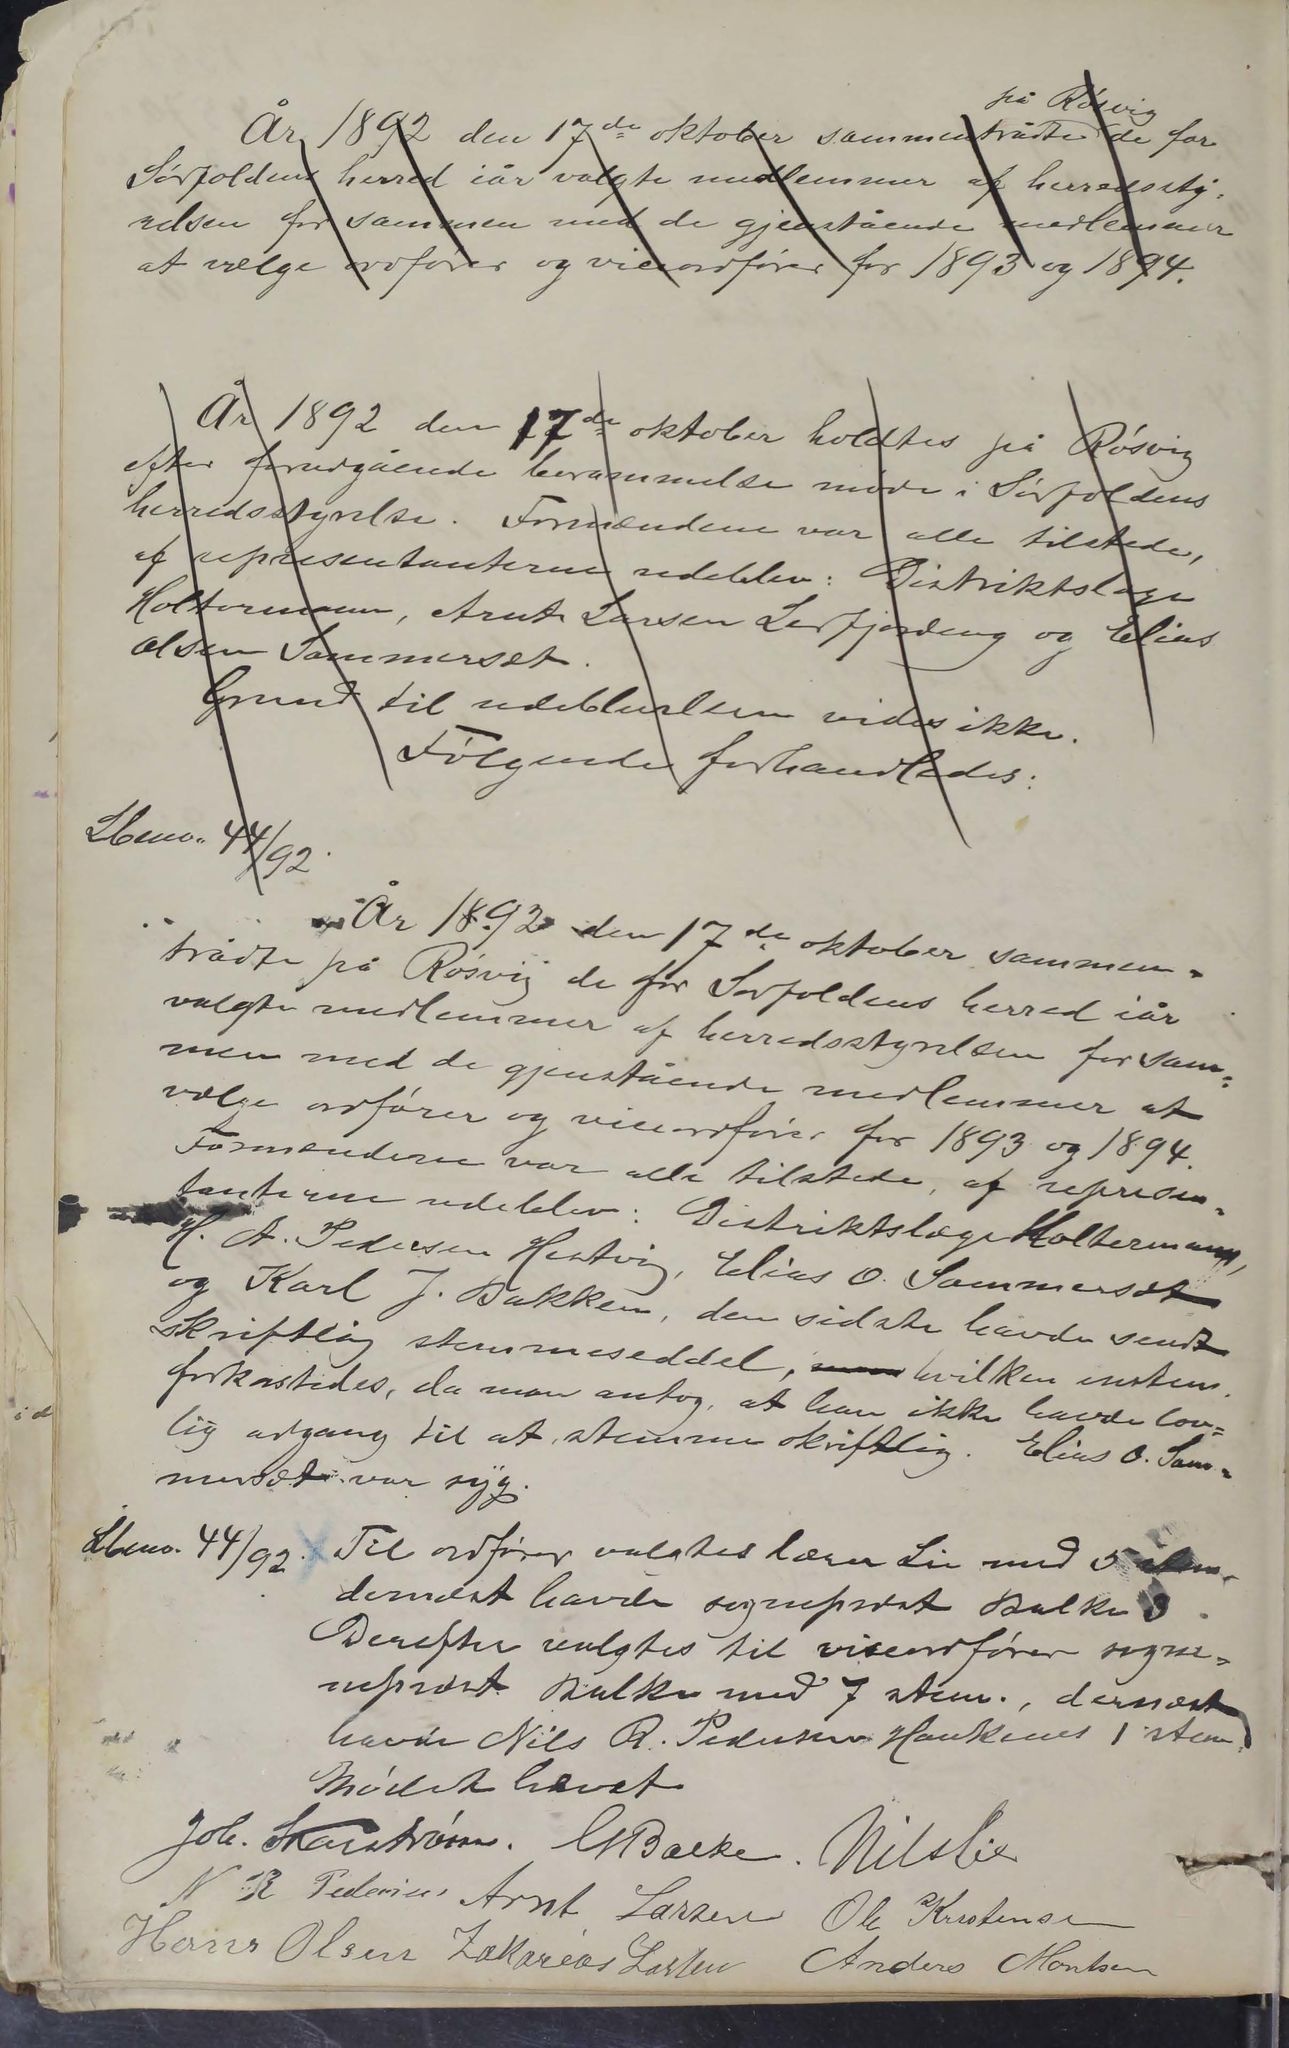 på Røsvig
År 1892 den 17de oktober sammentrådte de for
Sørfoldens herred iår valgte medlemmer af herredssty-
relsen for sammen med de gjenstående medlemmer
at vælge ordfører og viceordfører for 1893 og 1894.
År 1892 den 17de oktober holdtes på Røsvig
efter forudgående berammelse møde i Sørfoldens
herredsstyrelse. Formændene var alle tilstede,
af repræsentanterne udeblev: Distriktslæge
Holtermann, Arnt Larsen Leirfjordeng og Elias
Olsen Sommerset.
Grund til udeblivelsen vides ikke.
Følgende forhandledes:
Lbeno. 44/92.
År 1892 den 17de oktober sammen-
trådte på Røsvig de for Sørfoldens herred iår
valgte medlemmer af herredsstyrelsen for sam-
men med de gjenstående medlemmer at
vælge ordfører og viceordfører for 1893 og 1894.
Formændene var alle tilstede, af represen-
tanterne udeblev: Distriktslæge Holtermann,
H. A. Pedersen Hestvig, Elias O. Sommerset
og Karl J. Bakken, den sidste havde sendt
skriftlig stemmeseddel, hvilken enstem.
forkastedes, da man antog, at han ikke havde lov-
lig adgang til at stemme skriftlig. Elias O. Som-
merset var syg.
Lbeno. 44/92. Til ordfører valgtes lærer Lie med 5 stem.
dernæst havde sogneprest Balke 3.
Derefter valgtes til viceordfører sogne-
neprest Balke med 7 stem., dernæst
havde Nils R. Pedersen Haukenes 1 stem.
Mødet hævet
Joh. Skarstrøm. Balke. Nils Lie
N R Pedersen Arnt Larsen Ole Kristensen
Hans Olsen Zakarias Larsen Anders Montsen